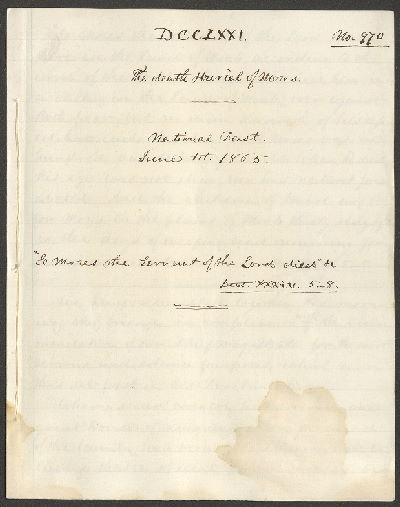 DCCLXXI.
No. 970
The death & burial of Moses.
National Fast.
June 1st. 1865.
"So Moses the servant of the Lord died" &c
Deut. XXXIV. 5-8.